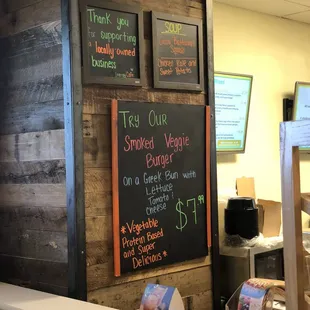 Thank you
for supporting
a locally owned
business
SOUP
Squash
Sweet Potato
TRY OUR
Smoked Veggie
Burger
on a Greek Bun with
Lettuce
Tomato &
cheese
$7.99
*Vegetable
Protein Based
and Super
Delicious*